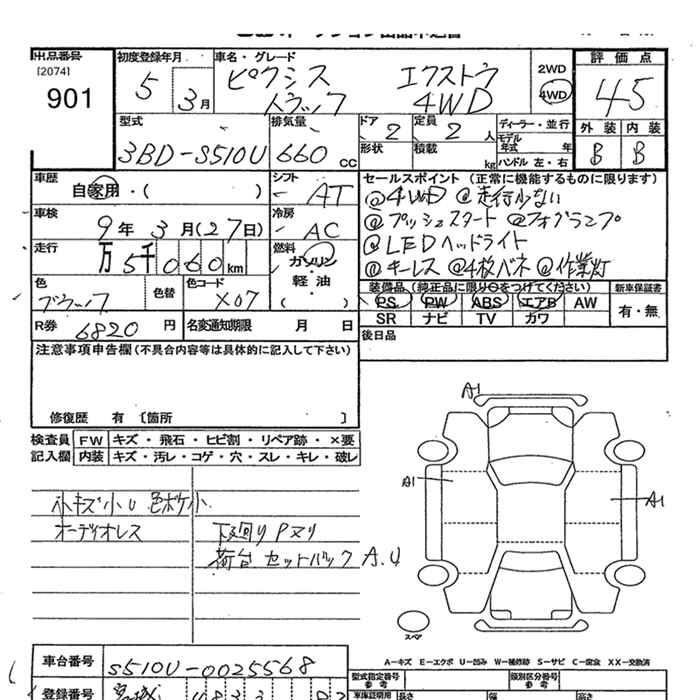 出品番号
[2074]
901
初度登録年月
5 3月
車名・グレード
ピクシス エクストラ
トラック 4WD
2WD
4WD
評価点
4.5
外装 内装
B B
型式
3BD-S510U
排気量
660 cc
ドア 2
形状
定員 2 人
積載 kg
ディーラー・並行
モデル年式 年
ハンドル 左・右
車歴 自家用・( )
シフト AT
車検 9年3月(27日)
冷房 AC
走行 万5千060km
燃料 ガソリン・軽油 ( )
色 ブラック
色替
色コード X07
R券 6820 円
名変通知期限 月 日
セールスポイント(正常に機能するものに限ります)
@4WD @走行少ない
@プッシュスタート @フォグランプ
@LEDヘッドライト
@キーレス @4枚バネ @作業灯
装備品(純正品に限り○をつけてください)
新車保証書
PS PW ABS エアB AW
SR ナビ TV カワ
有・無
後日品
注意事項申告欄(不具合内容等は具体的に記入して下さい)
修復歴 有〔箇所 〕
検査員記入欄
FW キズ・飛石・ヒビ割・リペア跡・×要
内装 キズ・汚レ・コゲ・穴・スレ・キレ・破レ
小キズ小U色ボケ小
オーディオレス
下廻りPヌリ
荷台セットバックA.U
A1
A1
A1
スペア
A-キズ E-エクボ U-凹み W-補修跡 S-サビ C-腐食 XX-交換済
車台番号 S510U-0025568
登録番号 宮城
型式指定番号 参考
類別区分番号 参考
車庫証明用 長さ 幅 高さ